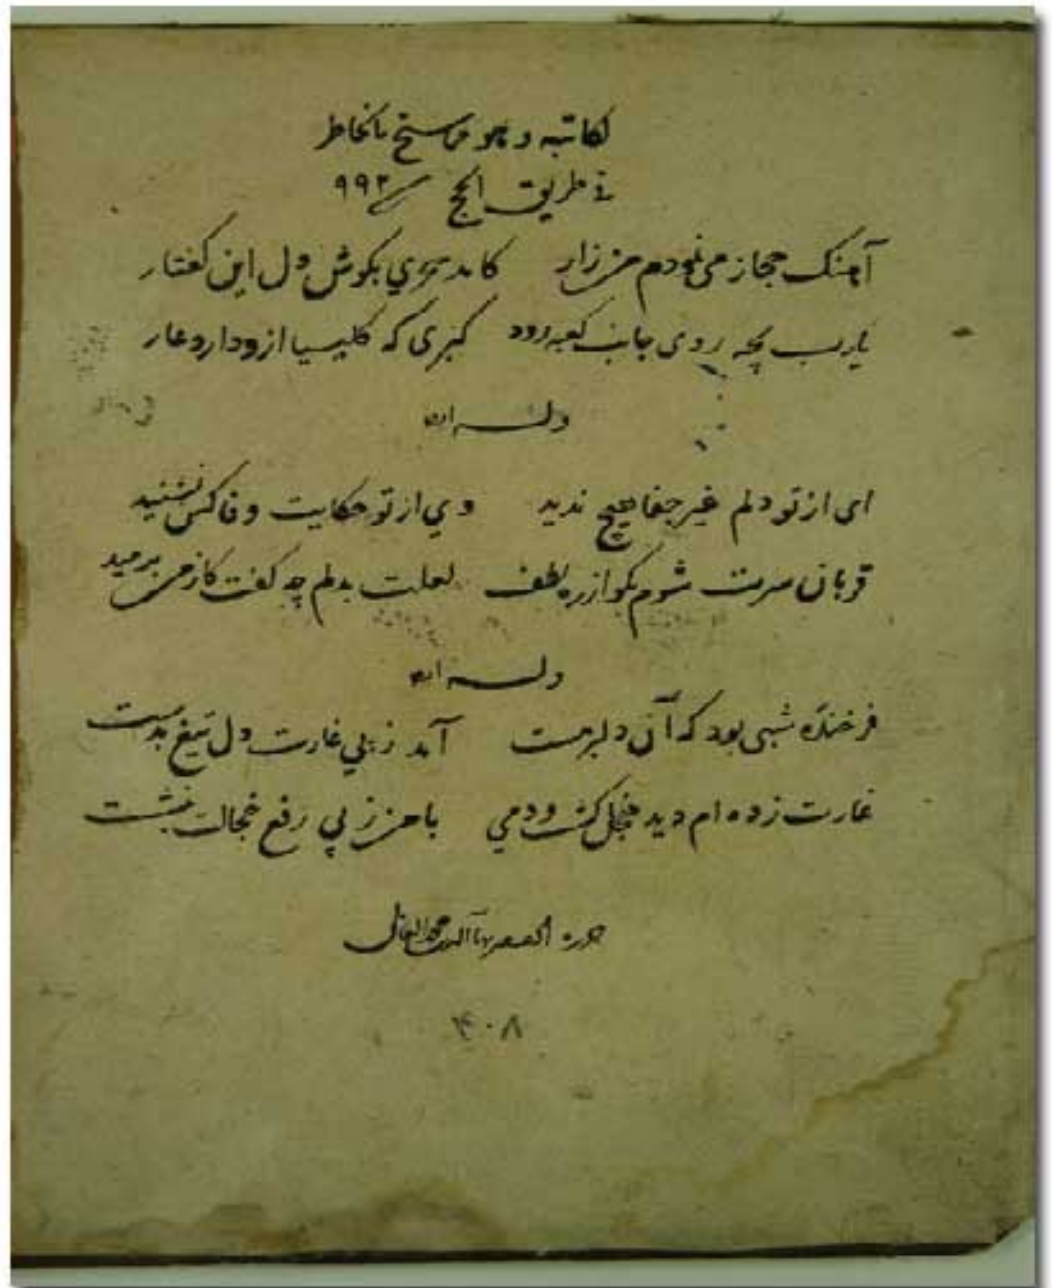 لکاتبه و هو مما سنح بالخاطر
فی طریق الحج ۹۹۲
آهنک حجاز می نمودم من زار کامد سحری بکوش دل این کفتار
یارب بچه روی جانب کعبه رود کبری که کلیسیا ازو دارد عار
وله ایضا
ای از تو دلم غیر جفا هیچ ندید وی از تو حکایت وفا کس نشنید
قربان سرت شوم بکو از ره لطف لعلت بدلم چه کفت کز من برمید
وله ایضا
فرخنده شبی بود که آن دلبر مست آمد ز پی غارت دل تیغ بدست
غارت زده ام دید خجل کشت و دمی با من ز پی رفع خجالت بنشست
حرره محمد العاملی
۴۰۸